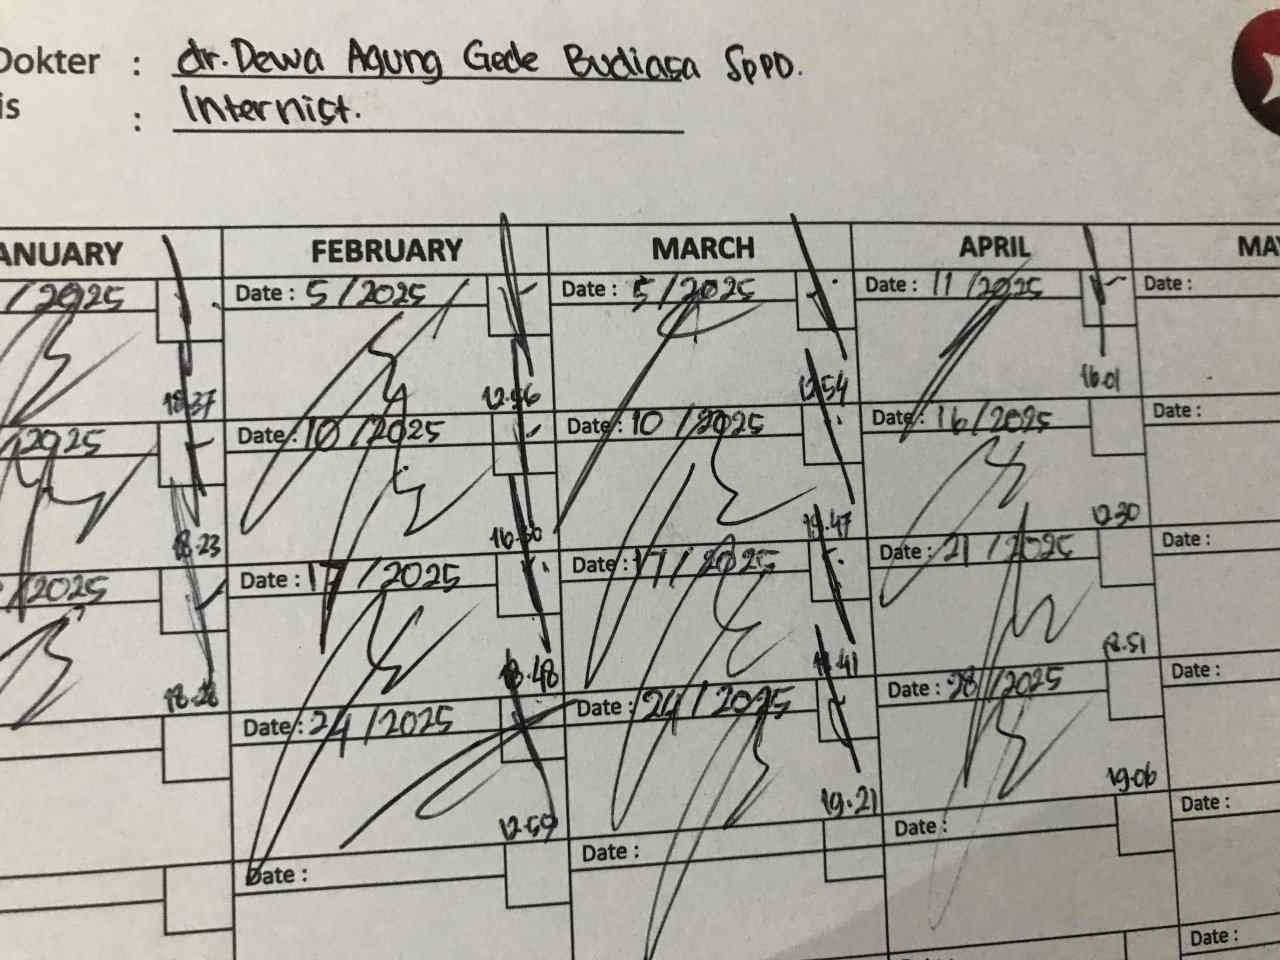 Dokter : dr. Dewa Agung Gede Budiasa SpPD.
is : Internist.
ANUARY FEBRUARY MARCH APRIL MA
/2025 Date : 5/2025 Date : 5/2025 Date : 11/2025 Date :
18.37 12.56 12.54 16.01
/2025 Date : 10/2025 Date : 10/2025 Date : 16/2025 Date :
18.23 16.30 19.47 12.30
/2025 Date : 17/2025 Date : 17/2025 Date : 21/2025 Date :
18.28 18.48 18.41 18.51
Date : 24/2025 Date : 24/2025 Date : 28/2025 Date :
12.59 19.21 19.06
Date : Date : Date : Date :
Date :